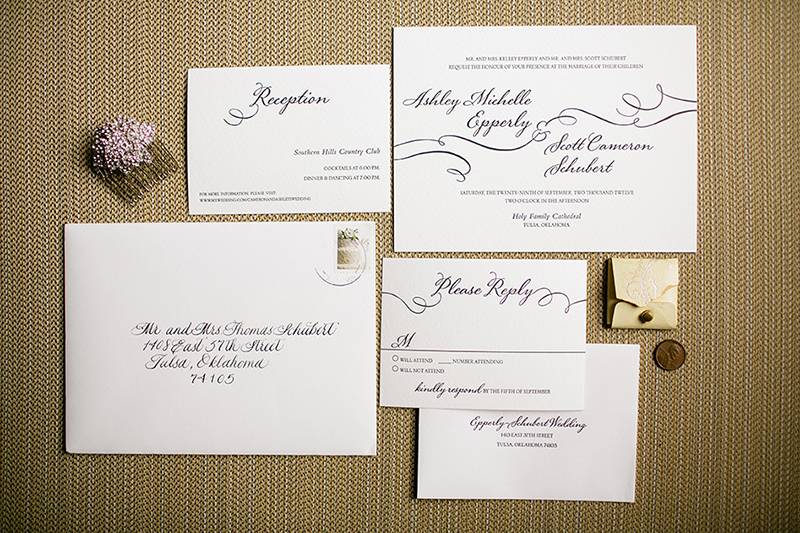 Reception
Southern Hills Country Club
COCKTAILS AT 6:00 P.M.
DINNER & DANCING AT 7:00 P.M.
FOR MORE INFORMATION, PLEASE VISIT:
MR. AND MRS. KELLEY EPPERLY AND MR. AND MRS. SCOTT SCHUBERT
REQUEST THE HONOUR OF YOUR PRESENCE AT THE MARRIAGE OF THEIR CHILDREN
Ashley Michelle
Epperly &
Scott Cameron
Schubert
SATURDAY, THE TWENTY-NINTH OF SEPTEMBER, TWO THOUSAND TWELVE
TWO O'CLOCK IN THE AFTERNOON
Holy Family Cathedral
TULSA, OKLAHOMA
Mr. and Mrs. Thomas Schubert
1408 East 37th Street
Tulsa, Oklahoma
74105
Please Reply
M
WILL ATTEND ____ NUMBER ATTENDING
WILL NOT ATTEND
kindly respond BY THE FIFTH OF SEPTEMBER
Epperly-Schubert Wedding
EAST STREET
TULSA, OKLAHOMA